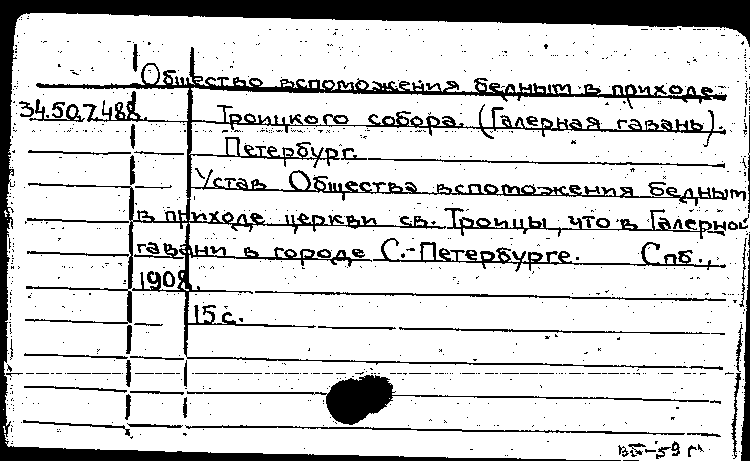 Общество вспоможения бедным в приходе
34.50.7.488. Троицкого собора. (Галерная гавань).
Петербург.
Устав Общества вспоможения бедным
в приходе церкви св. Троицы, что в Галерной
гавани в городе С.-Петербурге. Спб.,
1908.
15 с.